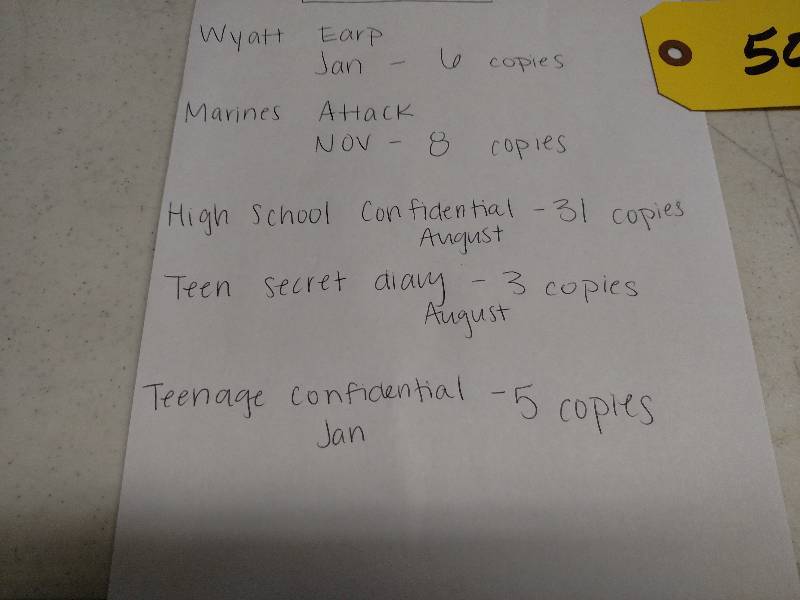 Wyatt Earp
Jan - 6 copies
Marines Attack
NOV - 8 copies
High School Confidential - 31 copies
August
Teen secret diary - 3 copies
August
Teenage confidential - 5 copies
Jan